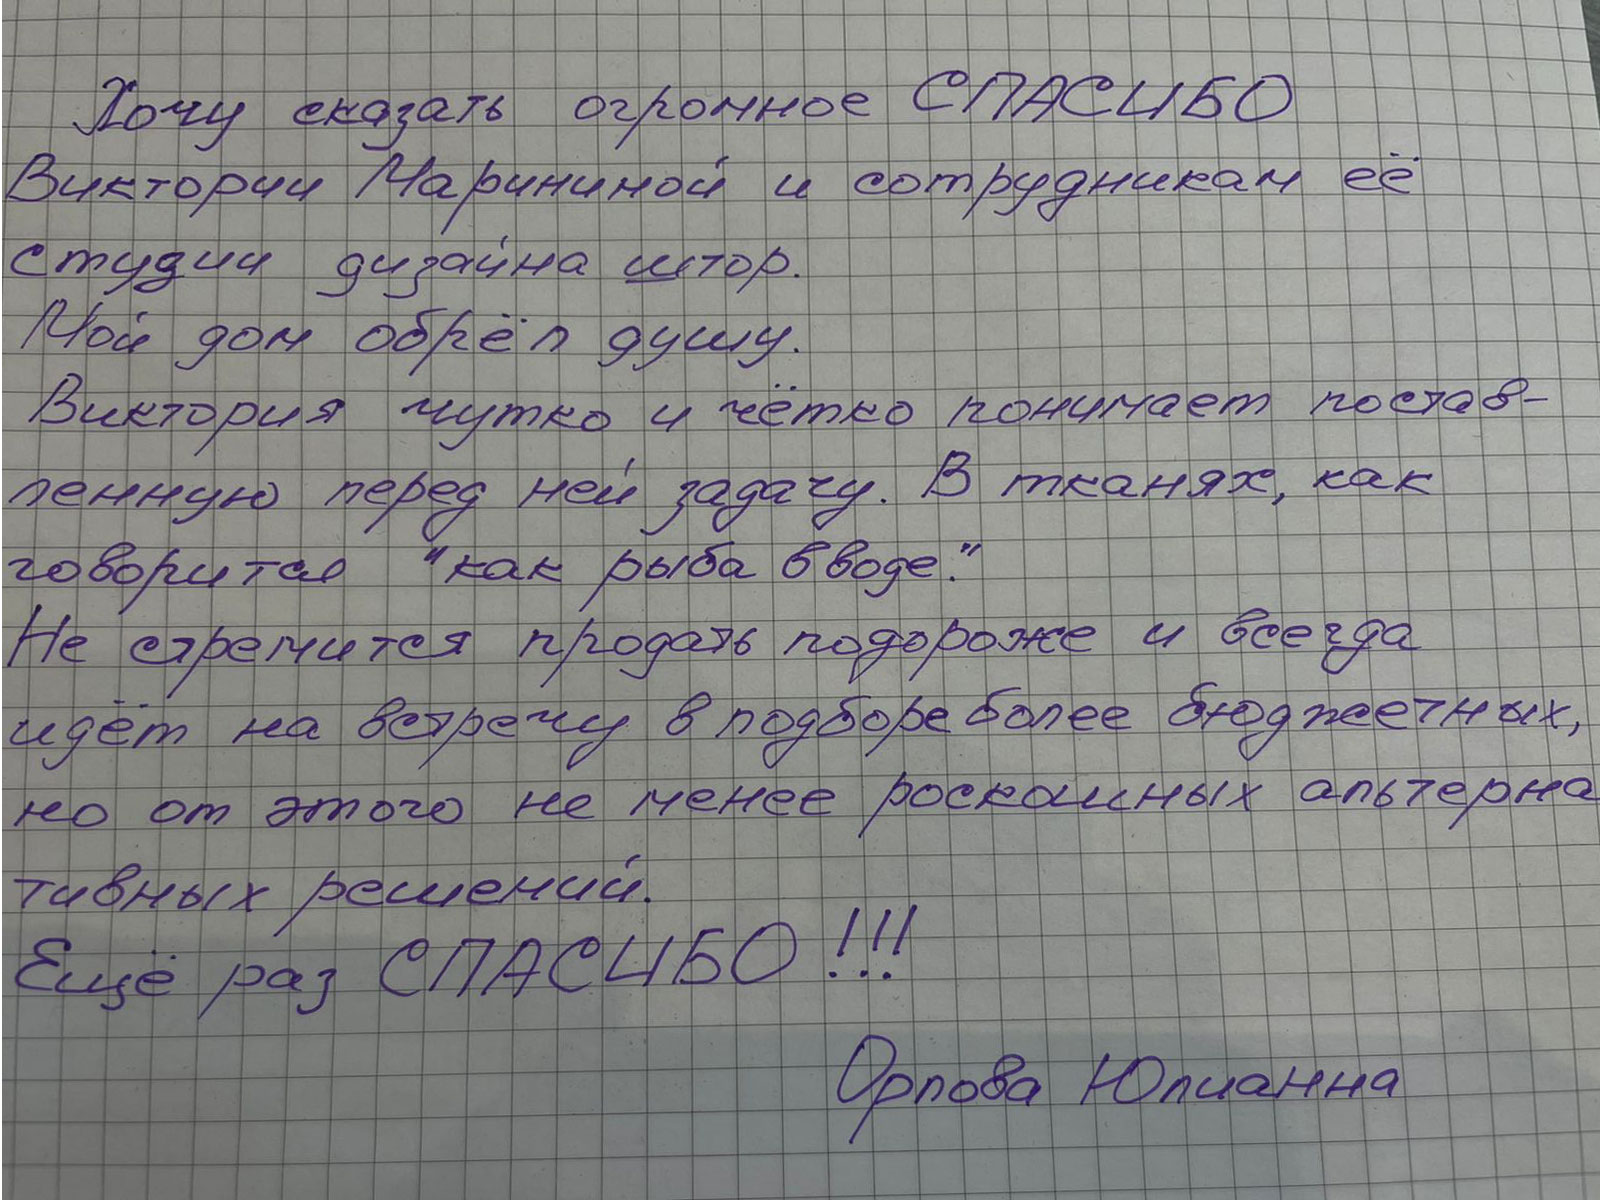 Хочу сказать огромное СПАСИБО
Виктории Марининой и сотрудникам её
студии дизайна штор.
Мой дом обрёл душу.
Виктория чутко и чётко понимает постав-
ленную перед ней задачу. В тканях, как
говорится "как рыба в воде."
Не стремится продать подороже и всегда
идёт на встречу в подборе более бюджетных,
но от этого не менее роскошных альтерна
тивных решений.
Ещё раз СПАСИБО!!!
Орлова Юлианна